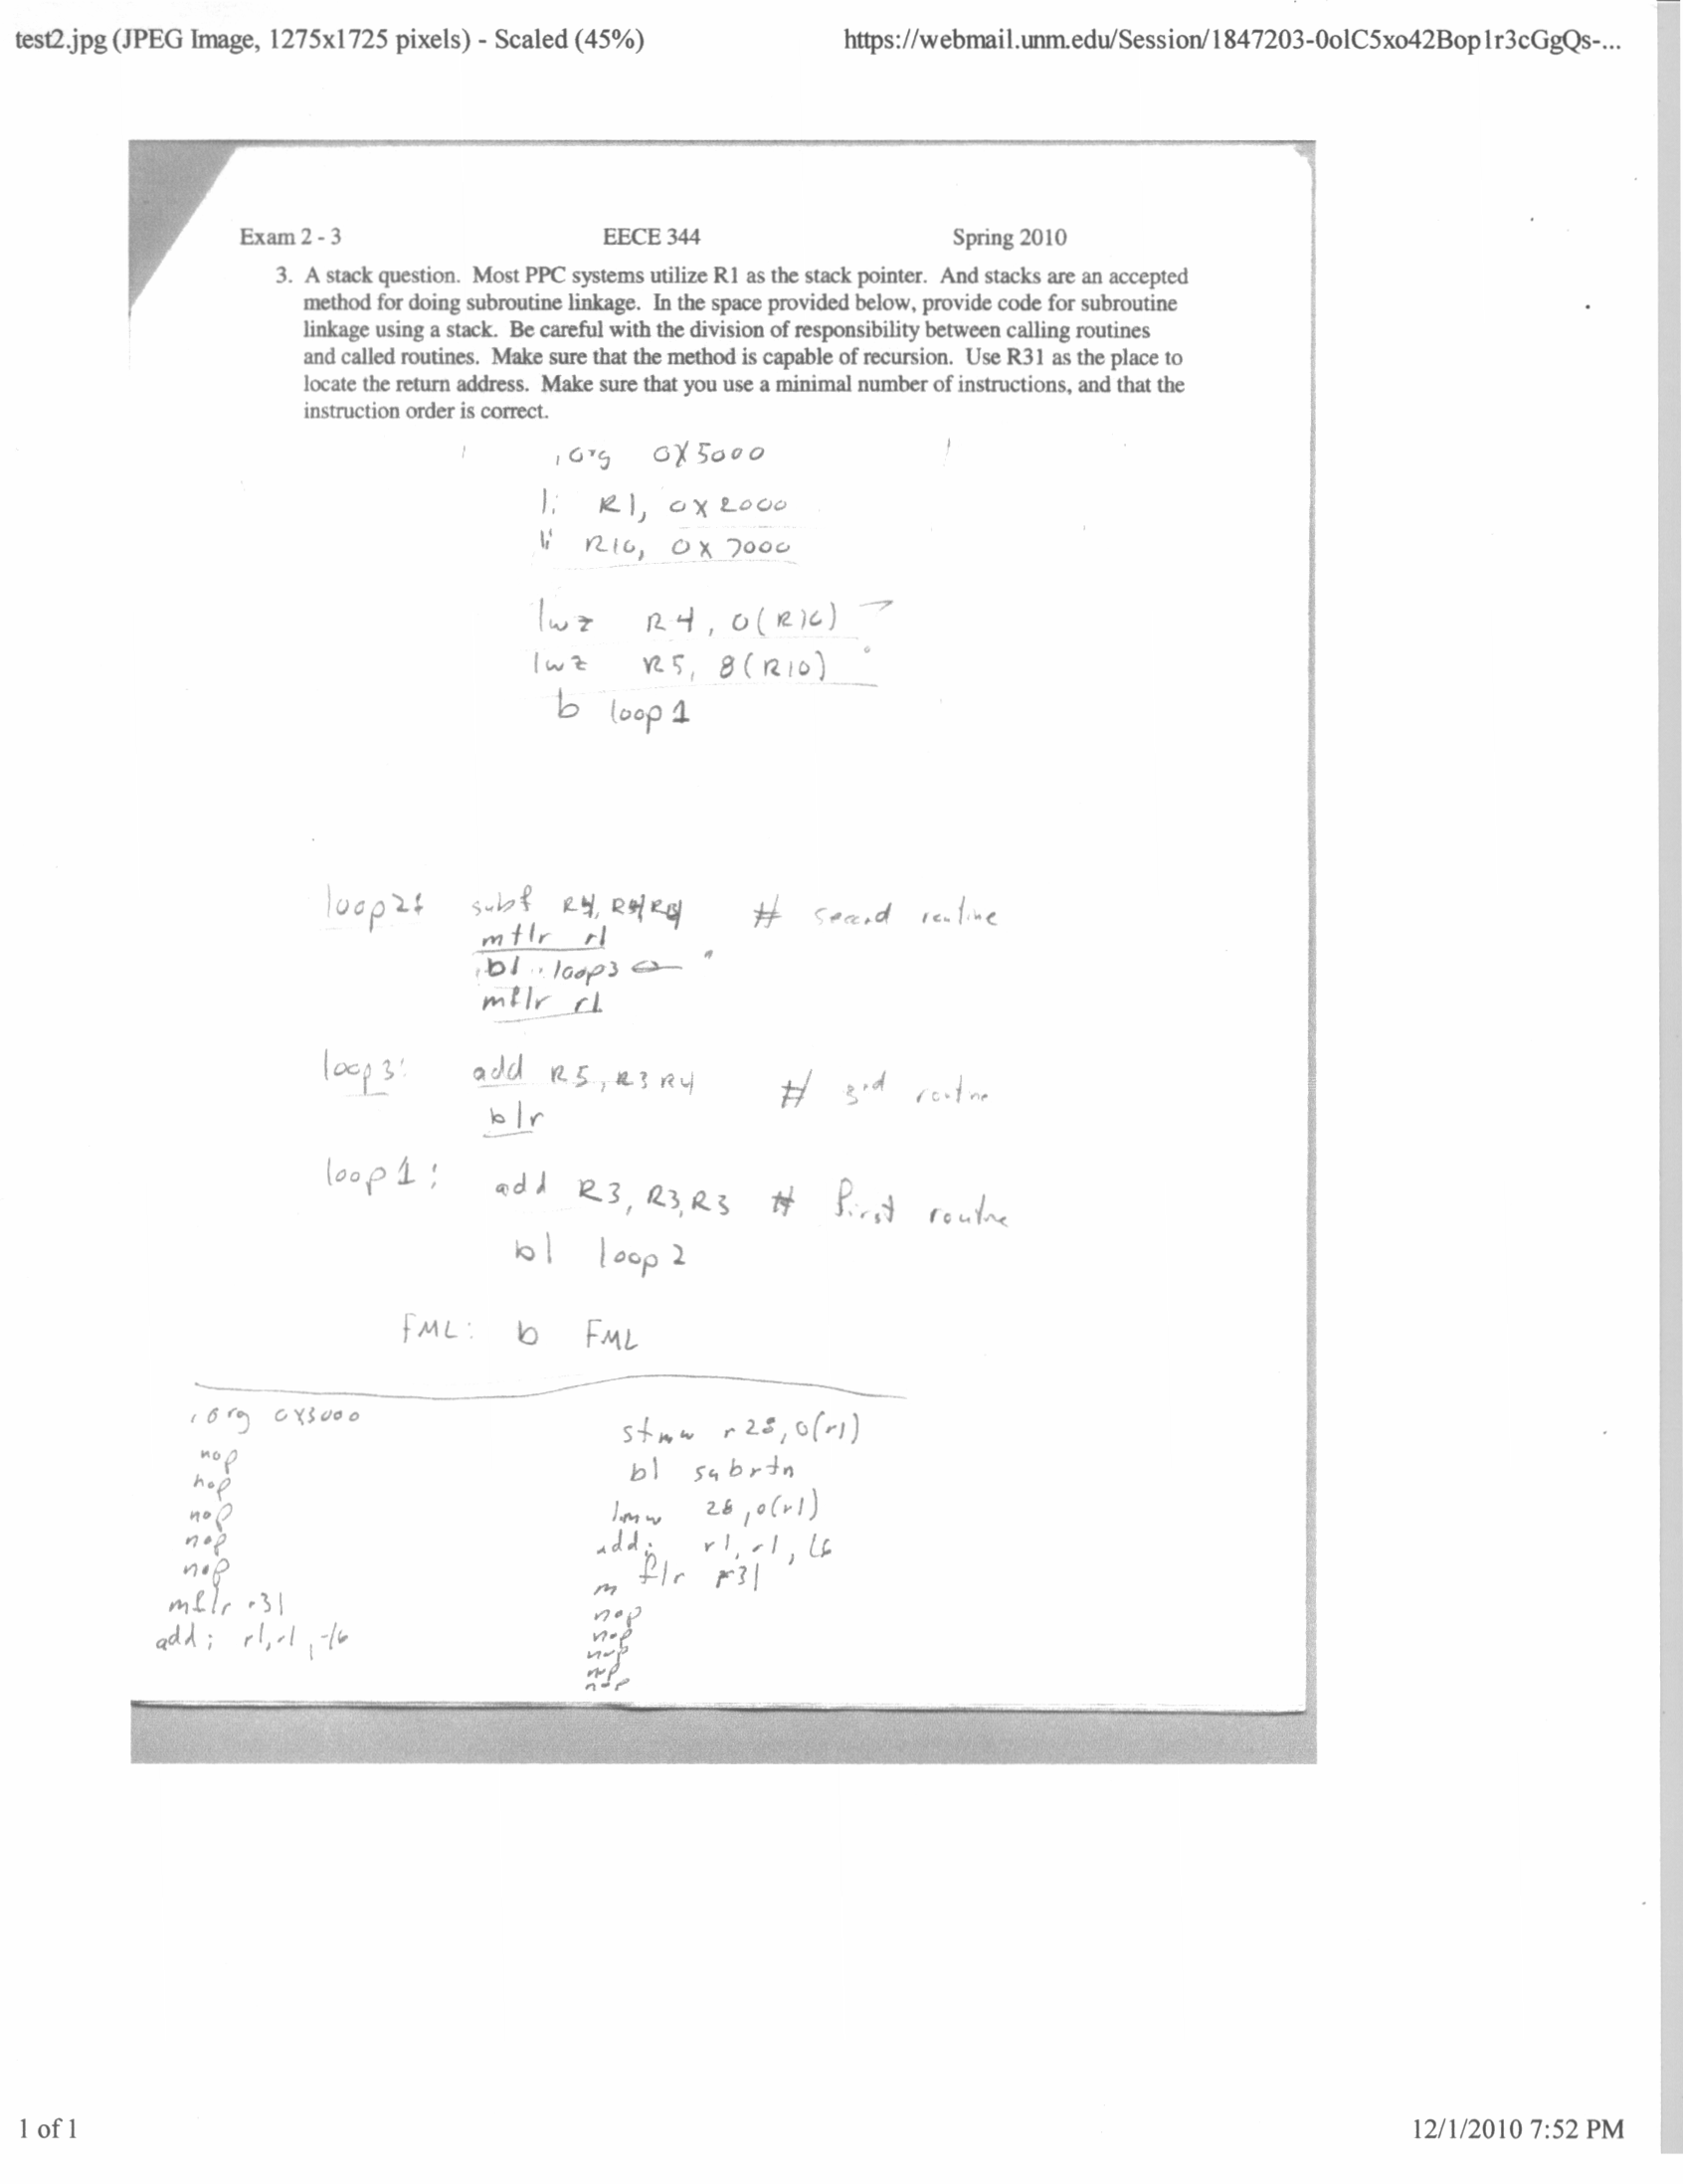 test2.jpg (JPEG Image, 1275x1725 pixels) - Scaled (45%) https://webmail.unm.edu/Session/1847203-0olC5xo42Bop1r3cGgQs-...
Exam 2 - 3 EECE 344 Spring 2010
3. A stack question. Most PPC systems utilize R1 as the stack pointer. And stacks are an accepted
method for doing subroutine linkage. In the space provided below, provide code for subroutine
linkage using a stack. Be careful with the division of responsibility between calling routines
and called routines. Make sure that the method is capable of recursion. Use R31 as the place to
locate the return address. Make sure that you use a minimal number of instructions, and that the
instruction order is correct.
.org 0X5000
li R1, 0x2000
li R10, 0x7000
lwz R4, 0(R10)
lwz R5, 8(R10)
b loop1
loop2: subf R4, # second routine
mtlr r1
bl loop3
mflr r1
loop3: add R5, R3 R4 # 3rd routine
blr
loop1: add R3, R3, R3 # first routine
bl loop2
FML: b FML
.org 0X3000
nop
nop
nop
nop
nop
mflr r31
addi r1, r1, -16
stmw r28, 0(r1)
bl subrtn
lmw 28, 0(r1)
addi r1, r1, 16
m flr r31
nop
nop
nop
nop
nop
1 of 1 12/1/2010 7:52 PM